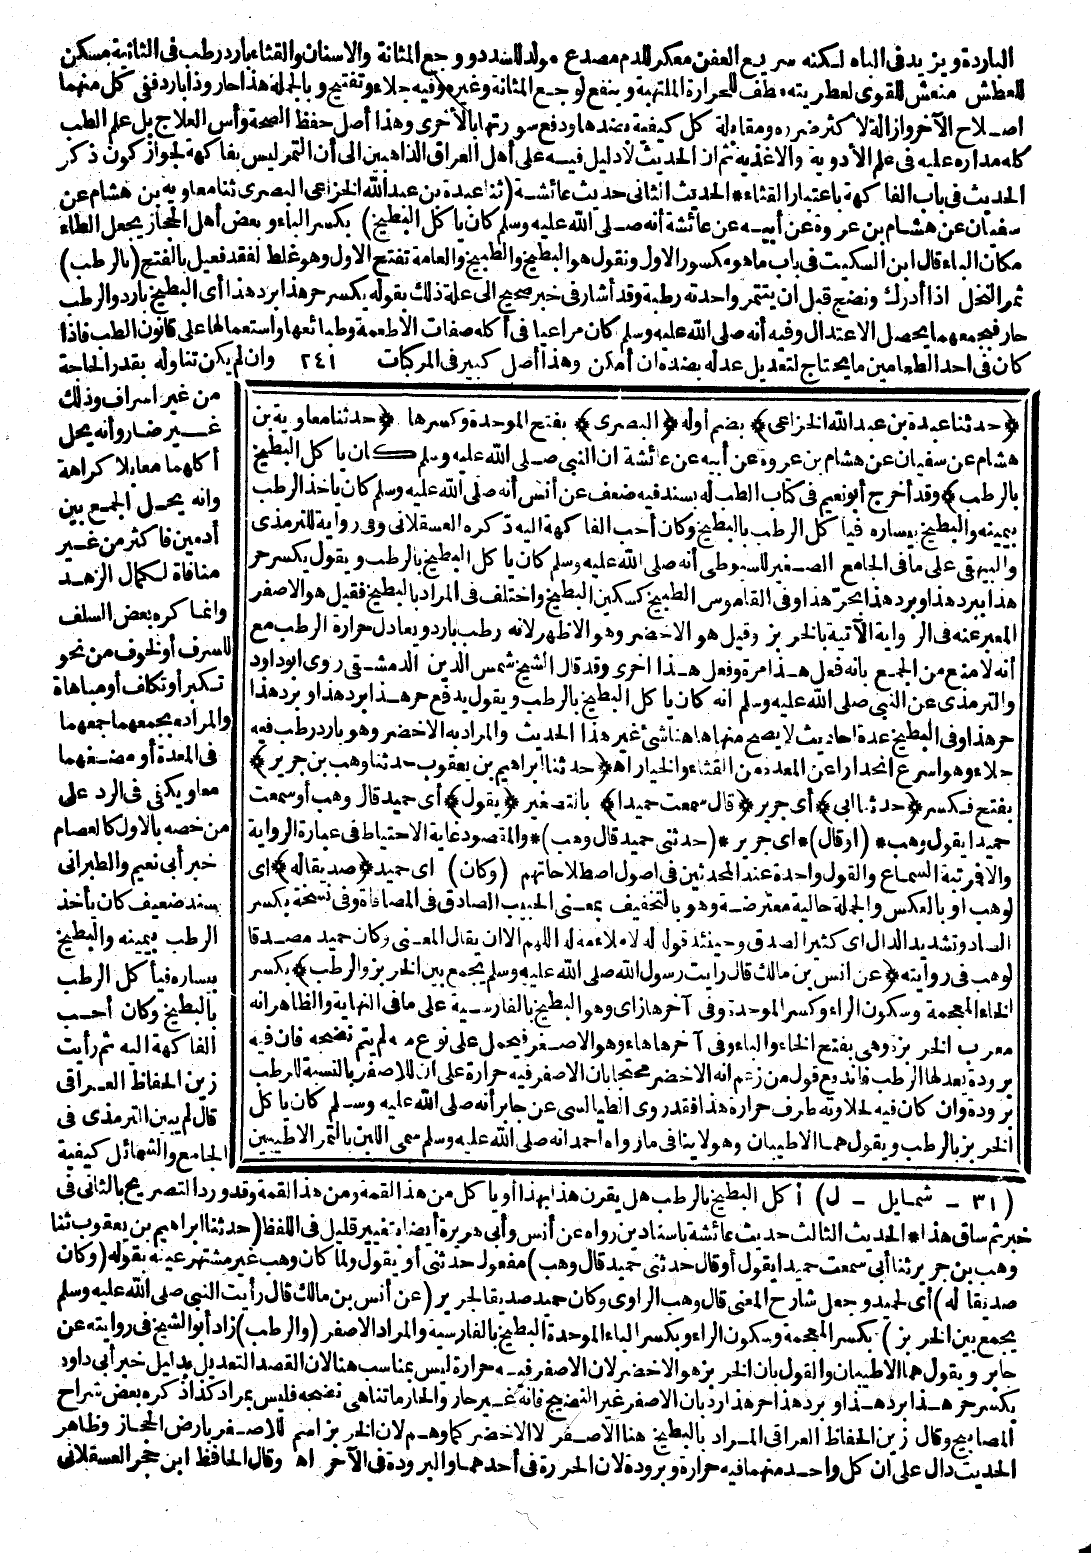 الباردة ويزيد فى الباه لكنه سريع العفن معكر للدم مصدع مولد للسدد ووجع المثانة والاسنان والقثاء بارد رطب فى الثانية مسكن
للعطش منعش للقوى لعطريته مطف للحرارة الملتهبة وينفع لوجع المثانة وغيره وفيه جلاء وتفتيح وبالجملة هذا حار وذا بارد ففى كل منهما
اصلاح الآخر وازالة لاكثر ضرره ومقابلة كل كيفية بضدها ودفع سورتها بالأخرى وهذا أصل حفظ الصحة وأس العلاج بل علم الطب
كله مداره عليه فى علم الأدوية والاغذية ثم ان الحديث لا دليل فيه على أهل العراق الذاهبين الى أن التمر ليس بفاكهة لجواز كون ذكر
الحديث فى باب الفاكهة باعتبار القثاء * الحديث الثانى حديث عائشة (ثنا عبدة بن عبد الله الخزاعى البصرى ثنا معاوية بن هشام عن
سفيان عن هشام بن عروة عن أبيه عن عائشة أنه صلى الله عليه وسلم كان يأكل البطيخ) بكسر الباء وبعض أهل الحجاز يجعل الطاء
مكان الباء قال ابن السكيت فى باب ما هو مكسور الاول وتقول هو البطيخ والطبيخ والعامة تفتح الاول وهو غلط لفقد فعيل بالفتح (بالرطب)
ثمر النخل اذا أدرك ونضج قبل ان يتتمر واحدته رطبة وقد أشار فى خبر صحيح الى علة ذلك بقوله يكسر حر هذا برد هذا أى البطيخ بارد والرطب
حار فبجمعهما يحصل الاعتدال وفيه أنه صلى الله عليه وسلم كان مراعيا فى أكله صفات الاطعمة وطبائعها واستعمالها على قانون الطب فاذا
كان فى احد الطعامين ما يحتاج لتعديل عدله بضده ان أمكن وهذا أصل كبير فى المركبات ٢٤١ وان لم يكن تناوله بقدر الحاجة
من غير اسراف وذلك
غير ضار وأنه يحل
أكلهما معا بلا كراهة
وانه يحل الجمع بين
أدمين فأكثر من غير
منافاة لكمال الزهد
وانما كره بعض السلف
للسرف أو لخوف من نحو
تكبر أو تكاف أو مباهاة
والمراد بجمعهما جمعهما
فى المعدة أو مضغهما
معا ويكفى فى الرد على
من خصه بالاول كالعصام
خبر أبى نعيم والطبرانى
بسند ضعيف كان يأخذ
الرطب بيمينه والبطيخ
بيساره فيأكل الرطب
بالبطيخ وكان أحب
الفاكهة اليه ثم رأيت
زين الحفاظ العراقى
قال لم يبين الترمذى فى
الجامع والشمائل كيفية
﴿حدثنا عبدة بن عبد الله الخزاعى﴾ بضم أوله ﴿البصرى﴾ بفتح الموحدة وكسرها ﴿حدثنا معاوية بن
هشام عن سفيان عن هشام بن عروة عن أبيه عن عائشة ان النبى صلى الله عليه وسلم كان يأكل البطيخ
بالرطب﴾ وقد أخرج أبو نعيم فى كتاب الطب له بسند فيه ضعف عن أنس أنه صلى الله عليه وسلم كان يأخذ الرطب
بيمينه والبطيخ بيساره فيأكل الرطب بالبطيخ وكان أحب الفاكهة اليه ذكره العسقلانى وفى رواية للترمذى
والبيهقى على ما فى الجامع الصغير للسيوطى أنه صلى الله عليه وسلم كان يأكل البطيخ بالرطب ويقول يكسر حر
هذا ببرد هذا وبرد هذا بحر هذا وفى القاموس الطبيخ كسكين البطيخ واختلف فى المراد بالبطيخ فقيل هو الاصفر
المعبر عنه فى الرواية الآتية بالخربز وقيل هو الاخضر وهو الاظهر لانه رطب بارد ويعادل حرارة الرطب مع
أنه لا منع من الجمع بانه فعل هذا مرة وفعل هذا اخرى وقد قال الشيخ شمس الدين الدمشقى روى ابو داود
والترمذى عن النبى صلى الله عليه وسلم انه كان يأكل البطيخ بالرطب ويقول يدفع حر هذا برد هذا وبرد هذا
حر هذا وفى البطيخ عدة احاديث لا يصح منها هاهنا شى غير هذا الحديث والمراد به الاخضر وهو بارد رطب فيه
جلاء وهو اسرع انحدارا عن المعدة من القثاء والخيار اه ﴿حدثنا ابراهيم بن يعقوب حدثنا وهب بن جرير﴾
بفتح فكسر ﴿حدثنا ابى﴾ أى جرير ﴿قال سمعت حميدا﴾ بالتصغير ﴿يقول﴾ أى حميد قال وهب أو سمعت
حميدا يقول وهب * (او قال) * اى جرير * (حدثنى حميد قال وهب) * والمقصود غاية الاحتياط فى عبارة الرواية
والا فمرتبة السماع والقول واحدة عند المحدثين فى اصول اصطلاحاتهم (وكان) اى حميد ﴿صديقا له﴾ اى
لوهب او بالعكس والجملة حالية معترضة وهو بالتخفيف بمعنى الحبيب الصادق فى المصافاة وفى نسخة بكسر
الصاد وتشديد الدال اى كثير الصدق وحينئذ قوله له لا ملاءمة له اللهم الا ان يقال المعنى وكان حميد مصدقا
لوهب فى روايته ﴿عن انس بن مالك قال رايت رسول الله صلى الله عليه وسلم يجمع بين الخربز والرطب﴾ بكسر
الخاء المعجمة وسكون الراء وكسر الموحدة وفى آخرها زاى وهو البطيخ بالفارسية على ما فى النهاية والظاهر انه
معرب الخربزه وهى بفتح الخاء والباء وفى آخرها هاء وهو الاصفر فيحمل على نوع منه لم يتم نضجه فان فيه
برودة يعدلها الرطب فاندفع قول من زعم انه الاخضر محتجا بان الاصفر فيه حرارة على ان للاصفر بالنسبة للرطب
برودة وان كان فيه لحلاوته طرف حرارة هذا فقد روى الطيالسى عن جابر أنه صلى الله عليه وسلم كان يأكل
الخربز بالرطب ويقول هما الاطيبان وهو لا ينافى ما رواه احمد انه صلى الله عليه وسلم سمى اللبن بالتمر الاطيبين
(٣١ - شمايل - ل) أكل البطيخ بالرطب هل يقرن هذا بهذا أو يأكل من هذا لقمة ومن هذا لقمة وقد ورد التصريح بالثانى فى
خبر ثم ساق هذا * الحديث الثالث حديث عائشة باسنادين رواه عن أنس وأبى هريرة أيضا بتغيير قليل فى اللفظ (حدثنا ابراهيم بن يعقوب ثنا
وهب بن جرير ثنا أبى سمعت حميدا يقول أو قال حدثنى حميد قال وهب) مفعول حدثنى أو يقول ولما كان وهب غير مشتهر عينه بقوله (وكان
صديقا له) أى لحميد وجعل شارح المعنى قال وهب الراوى وكان حميد صديقا لجرير (عن أنس بن مالك قال رأيت النبى صلى الله عليه وسلم
يجمع بين الخربز) بكسر المعجمة وسكون الراء وبكسر الباء الموحدة البطيخ بالفارسية والمراد الاصفر (والرطب) زاد أبو الشيخ فى روايته عن
جابر ويقول هما الاطيبان والقول بان الخربز هو الاخضر لان الاصفر فيه حرارة ليس بمناسب هنا لان القصد التعديل بدليل خبر أبى داود
يكسر حر هذا برد هذا وبرد هذا حر هذا رد بان الاصفر غير النضيج فانه غير حار والحار ما تناهى نضجه فليس بمراد كذا ذكره بعض شراح
المصابيح وقال زين الحفاظ العراقى المراد بالبطيخ هنا الاصفر لا الاخضر كما وهم لان الخربز اسم للاصفر بارض الحجاز وظاهر
الحديث دال على ان كل واحد منهما فيه حرارة وبرودة لان الحرارة فى أحدهما والبرودة فى الآخر اه وقال الحافظ ابن حجر العسقلانى